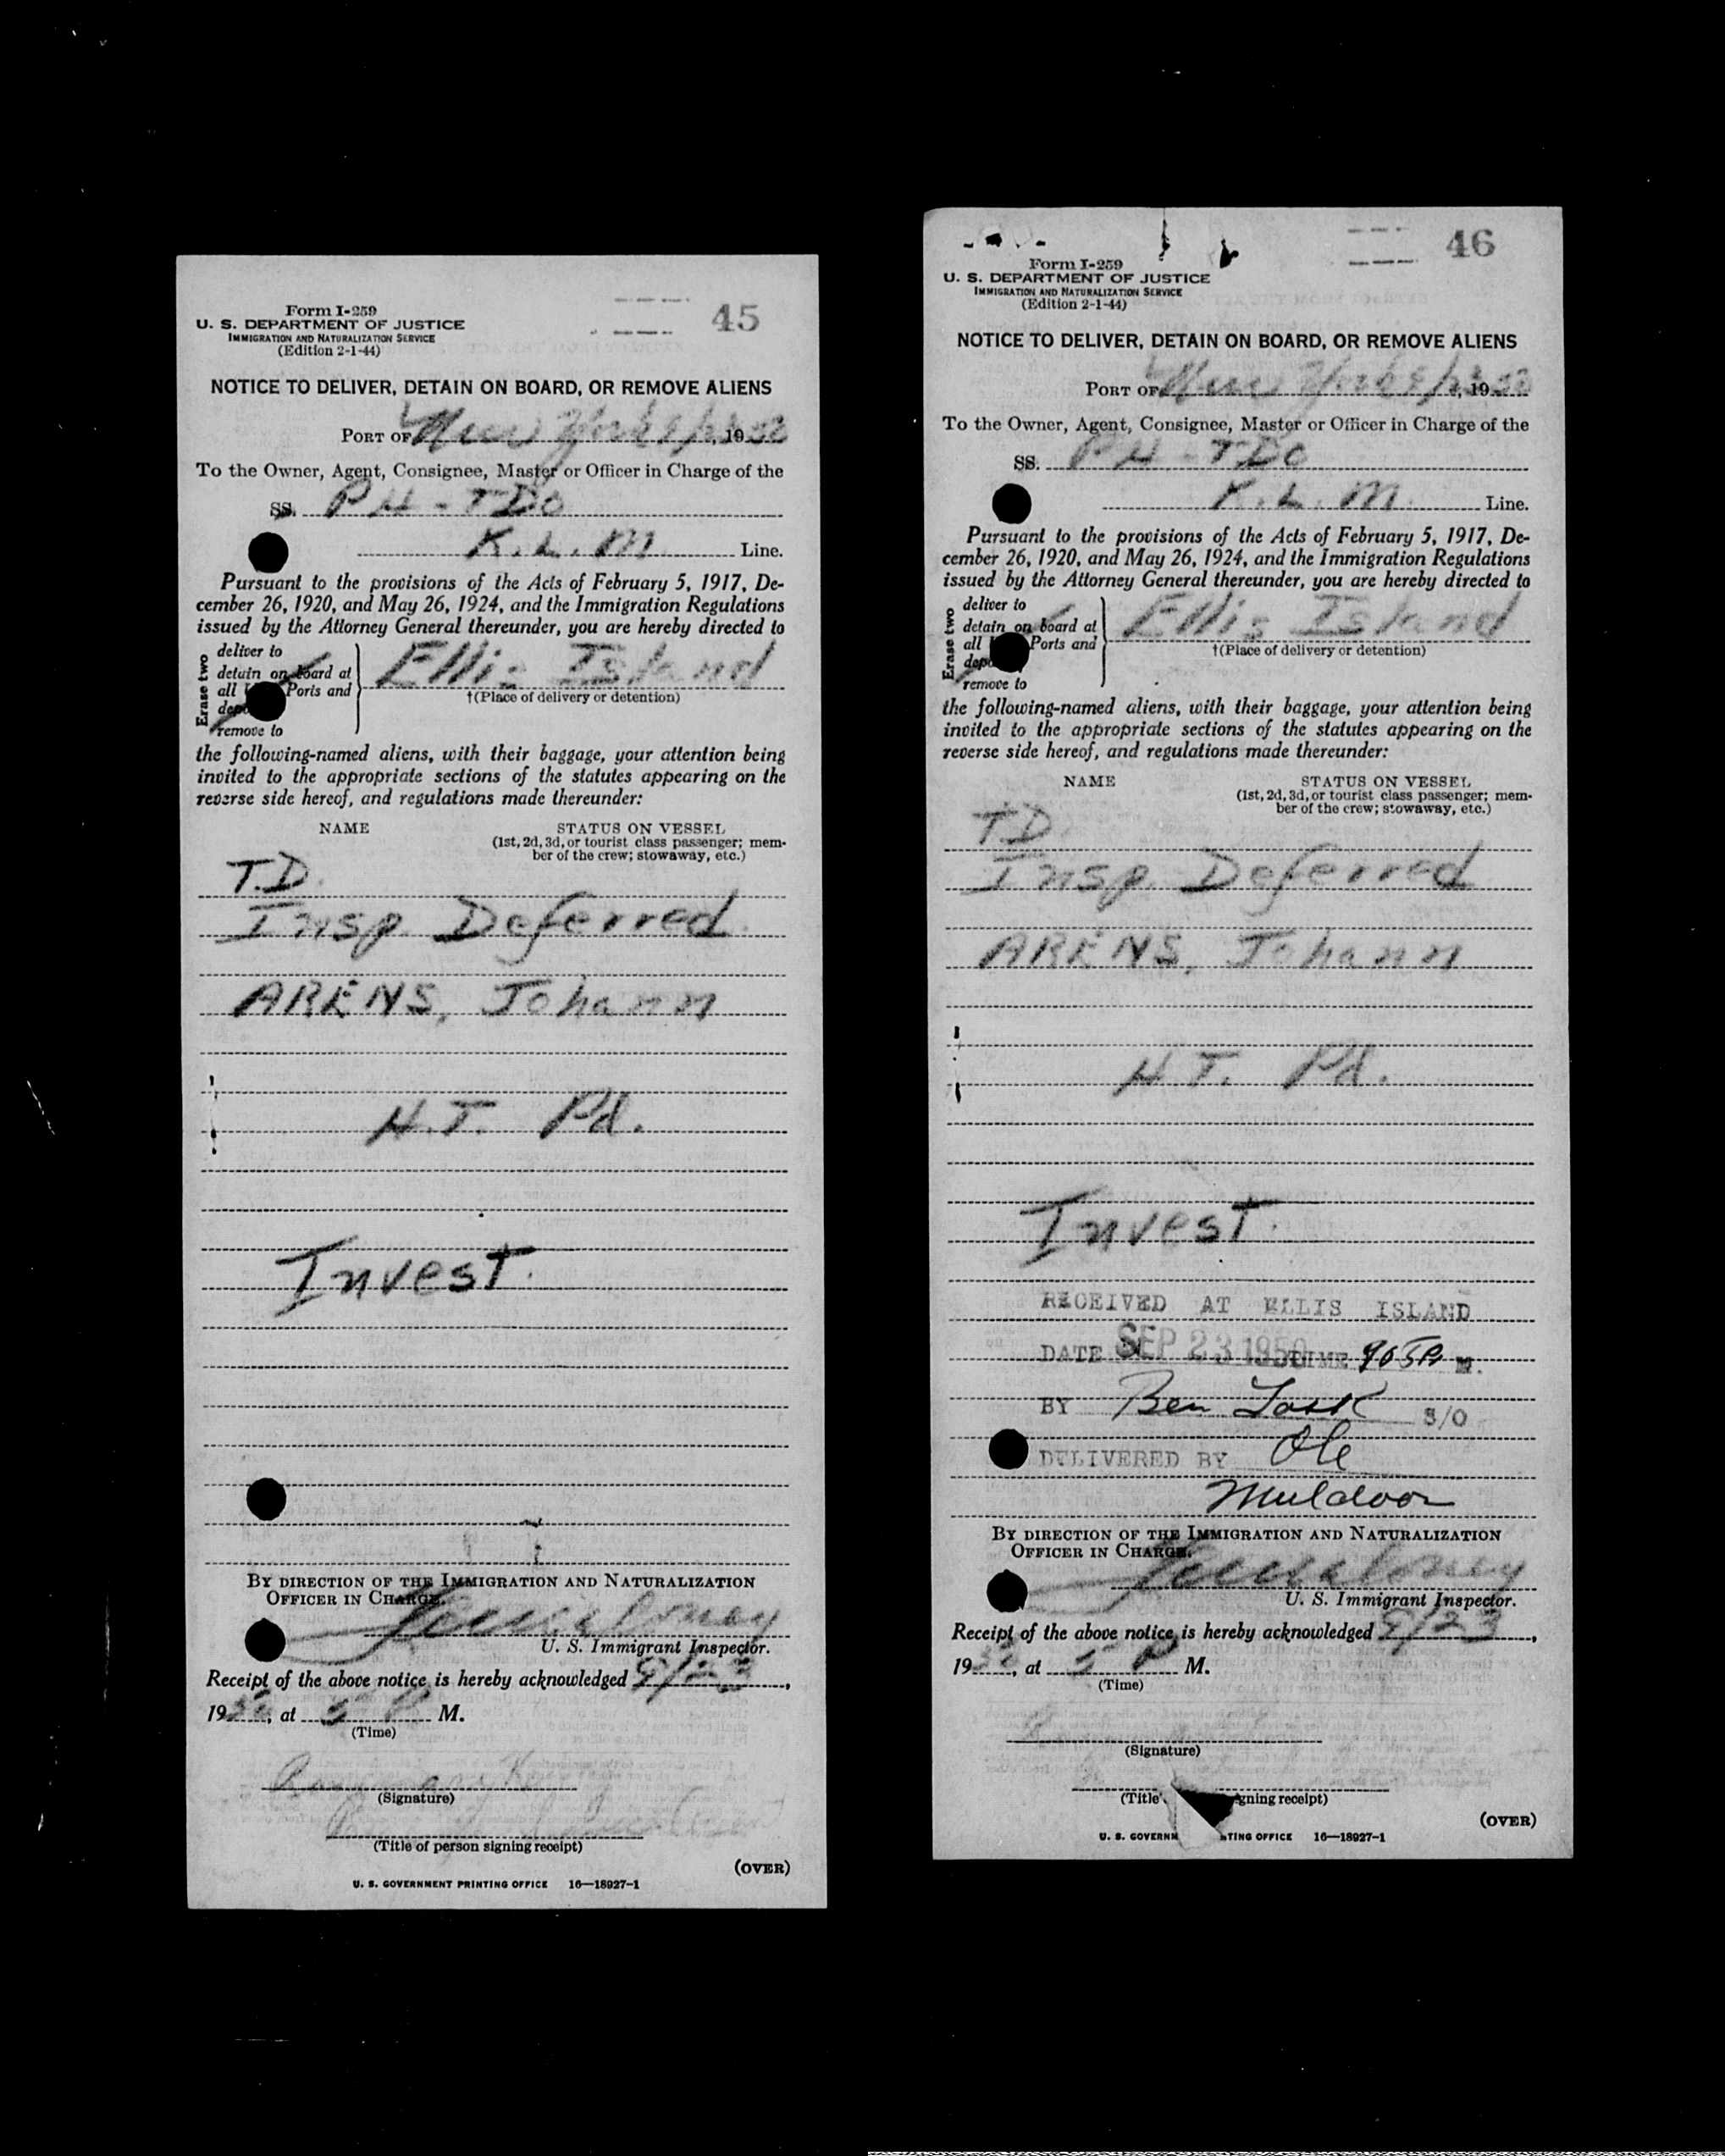 45
Form I-259
U. S. DEPARTMENT OF JUSTICE
IMMIGRATION AND NATURALIZATION SERVICE
(Edition 2-1-44)
NOTICE TO DELIVER, DETAIN ON BOARD, OR REMOVE ALIENS
PORT OF New York 19 50
To the Owner, Agent, Consignee, Master or Officer in Charge of the
SS. PH-TDO
K. L. M. Line.
Pursuant to the provisions of the Acts of February 5, 1917, De-
cember 26, 1920, and May 26, 1924, and the Immigration Regulations
issued by the Attorney General thereunder, you are hereby directed to
Erase two
deliver to
detain on board at
all Ports and
remove to
Ellis Island
†(Place of delivery or detention)
the following-named aliens, with their baggage, your attention being
invited to the appropriate sections of the statutes appearing on the
reverse side hereof, and regulations made thereunder:
NAME STATUS ON VESSEL
(1st, 2d, 3d, or tourist class passenger; mem-
ber of the crew; stowaway, etc.)
T.D.
Insp. Deferred
ARENS, Johann
H.T. Pd.
Invest.
BY DIRECTION OF THE IMMIGRATION AND NATURALIZATION
OFFICER IN CHARGE.
U. S. Immigrant Inspector.
Receipt of the above notice is hereby acknowledged 9/23,
19 50, at 5 P M.
(Time)
(Signature)
(Title of person signing receipt)
(OVER)
U. S. GOVERNMENT PRINTING OFFICE 16—18927-1
46
Form I-259
U. S. DEPARTMENT OF JUSTICE
IMMIGRATION AND NATURALIZATION SERVICE
(Edition 2-1-44)
NOTICE TO DELIVER, DETAIN ON BOARD, OR REMOVE ALIENS
PORT OF New York 19 50
To the Owner, Agent, Consignee, Master or Officer in Charge of the
SS. PH-TDO
K. L. M. Line.
Pursuant to the provisions of the Acts of February 5, 1917, De-
cember 26, 1920, and May 26, 1924, and the Immigration Regulations
issued by the Attorney General thereunder, you are hereby directed to
Erase two
deliver to
detain on board at
all Ports and
remove to
Ellis Island
†(Place of delivery or detention)
the following-named aliens, with their baggage, your attention being
invited to the appropriate sections of the statutes appearing on the
reverse side hereof, and regulations made thereunder:
NAME STATUS ON VESSEL
(1st, 2d, 3d, or tourist class passenger; mem-
ber of the crew; stowaway, etc.)
T.D.
Insp. Deferred
ARENS, Johann
H.T. Pd.
Invest.
RECEIVED AT ELLIS ISLAND
DATE SEP 23 1950 TIME 905P M.
BY Ben S/O
DELIVERED BY Ole
Muldoon
BY DIRECTION OF THE IMMIGRATION AND NATURALIZATION
OFFICER IN CHARGE.
U. S. Immigrant Inspector.
Receipt of the above notice is hereby acknowledged 9/23,
19 50, at 5 P M.
(Time)
(Signature)
(Title signing receipt)
(OVER)
U. S. GOVERNM TING OFFICE 16—18927-1